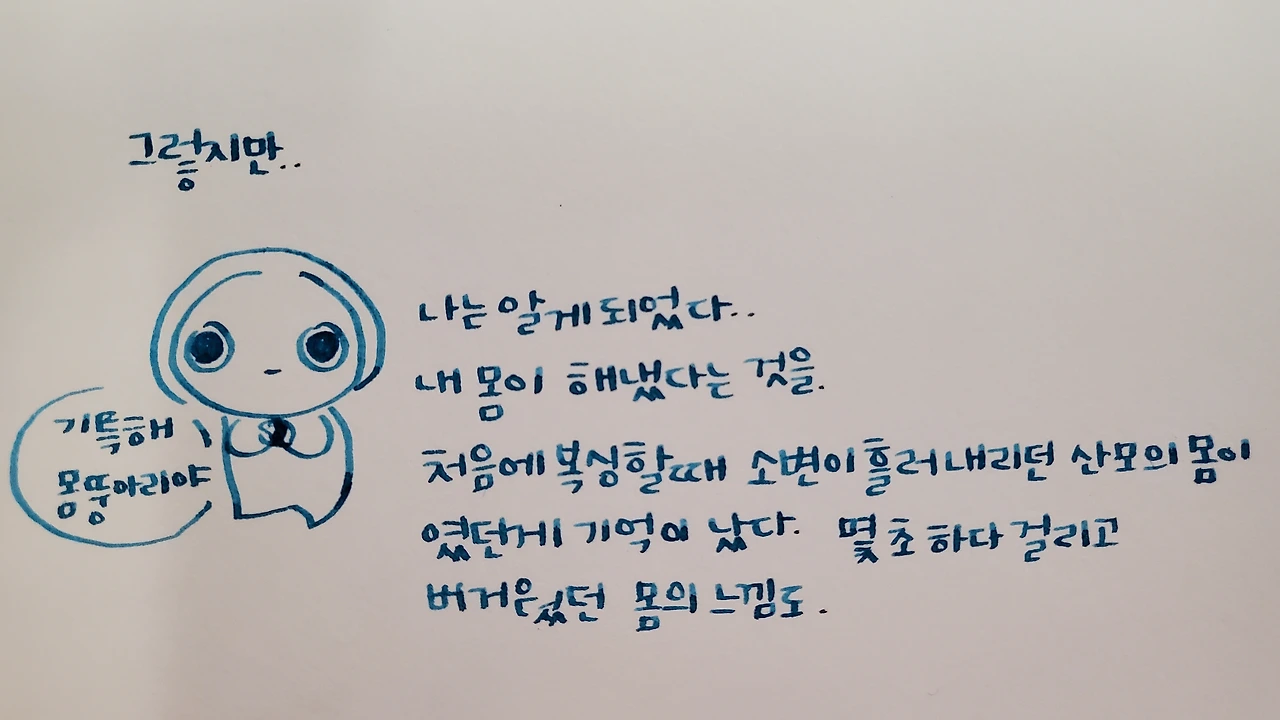 그렇지만..
나는 알게 되었다..
내 몸이 해냈다는 것을.
기특해
몸뚱아리야
처음에 복싱할때 소변이 흘러내리던 산모의 몸이
였던게 기억이 났다. 몇초 하다 걸리고
버거웠던 몸의 느낌도.